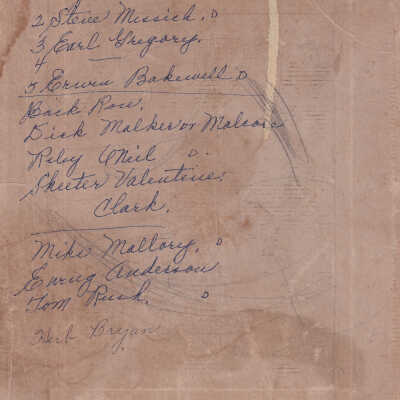 2 Steve Messick. D
3 Earl Gregory.
4 —
5 Erwin Bakewell D
Back Row.
Dick Malker or Malson
Riley ONeil D.
Skeeter Valentine.
Clark.
Mike Mallory. D
Enrug Anderson
Tom Rusk. D
Herb Bryan